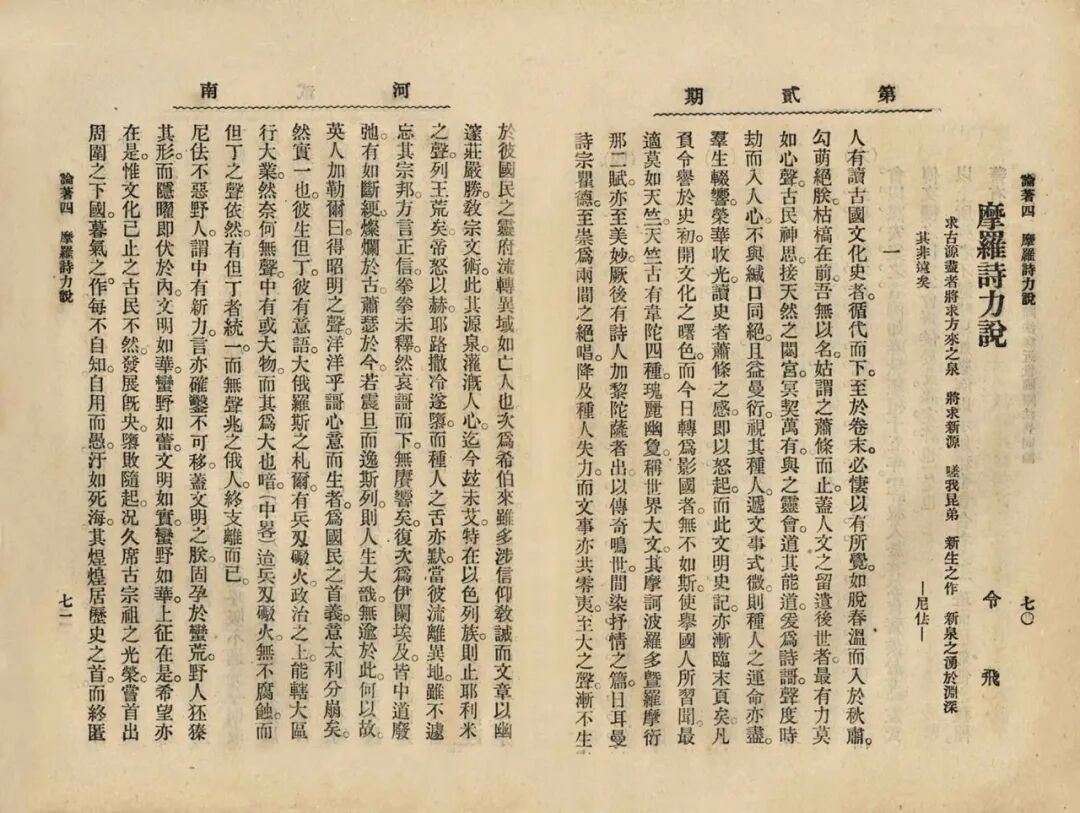 第貳期
論著四　摩羅詩力說
七〇
摩羅詩力說
令飛
求古源盡者將求方來之泉　將求新源　嗟我昆弟　新生之作　新泉之湧於淵深
其非遠矣
—尼佉—
一
人有讀古國文化史者。循代而下。至於卷末。必悽以有所覺。如脫春溫而入於秋肅。
勾萌絕朕。枯槁在前。吾無以名。姑謂之蕭條而止。蓋人文之留遺後世者。最有力莫
如心聲。古民神思。接天然之閟宮。冥契萬有。與之靈會。道其能道。爰爲詩謌。聲度時
劫而入人心。不與緘口同絕。且益曼衍。視其種人。遞文事式微。則種人之運命亦盡。
羣生輟響。榮華收光。讀史者蕭條之感。卽以怒起。而此文明史記亦漸臨末頁矣。凡
負令譽於史初。開文化之曙色。而今日轉爲影國者。無不如斯。使舉國人所習聞。最
適莫如天竺。天竺古有韋陀四種。瑰麗幽夐。稱世界大文。其摩訶波羅多曁羅摩衍
那二賦。亦至美妙。厥後有詩人加黎陀薩者出。以傳奇鳴世。間染抒情之篇。日耳曼
詩宗瞿德。至崇爲兩間之絕唱。降及種人失力。而文事亦共零夷。至大之聲。漸不生
河南
於彼國民之靈府。流轉異域。如亡人也。次爲希伯來。雖多涉信仰敎誡。而文章以幽
邃莊嚴勝。敎宗文術。此其源泉。灌漑人心。迄今玆未艾。特在以色列族。則止耶利米
之聲。列王荒矣。帝怒以赫。耶路撒冷遂隳。而種人之舌亦默。當彼流離異地。雖不遽
忘其宗邦。方言正信。拳拳未釋。然哀謌而下。無賡響矣。復次爲伊蘭埃及。皆中道廢
弛。有如斷綆。燦爛於古。蕭瑟於今。若震旦而逸斯列。則人生大戩。無逾於此。何以故。
英人加勒爾曰。得昭明之聲。洋洋乎謌心意而生者。爲國民之首義。意太利分崩矣。
然實一也。彼生但丁。彼有意語。大俄羅斯之札爾。有兵刄礮火。政治之上。能轄大區。
行大業。然奈何無聲。中有或大物。而其爲大也喑。（中畧）迨兵刄礮火。無不腐蝕。而
但丁之聲依然。有但丁者統一。而無聲兆之俄人。終支離而已。
尼佉不惡野人。謂中有新力。言亦確鑿不可移。蓋文明之朕。固孕於蠻荒。野人狉獉
其形。而隱曜卽伏於內。文明如華。蠻野如蕾。文明如實。蠻野如華。上征在是。希望亦
在是。惟文化已止之古民不然。發展旣央。隳敗隨起。况久席古宗祖之光榮。嘗首出
周圍之下國。暮氣之作。每不自知。自用而愚。汙如死海。其煌煌居歷史之首。而終匿
論著四　摩羅詩力說
七一